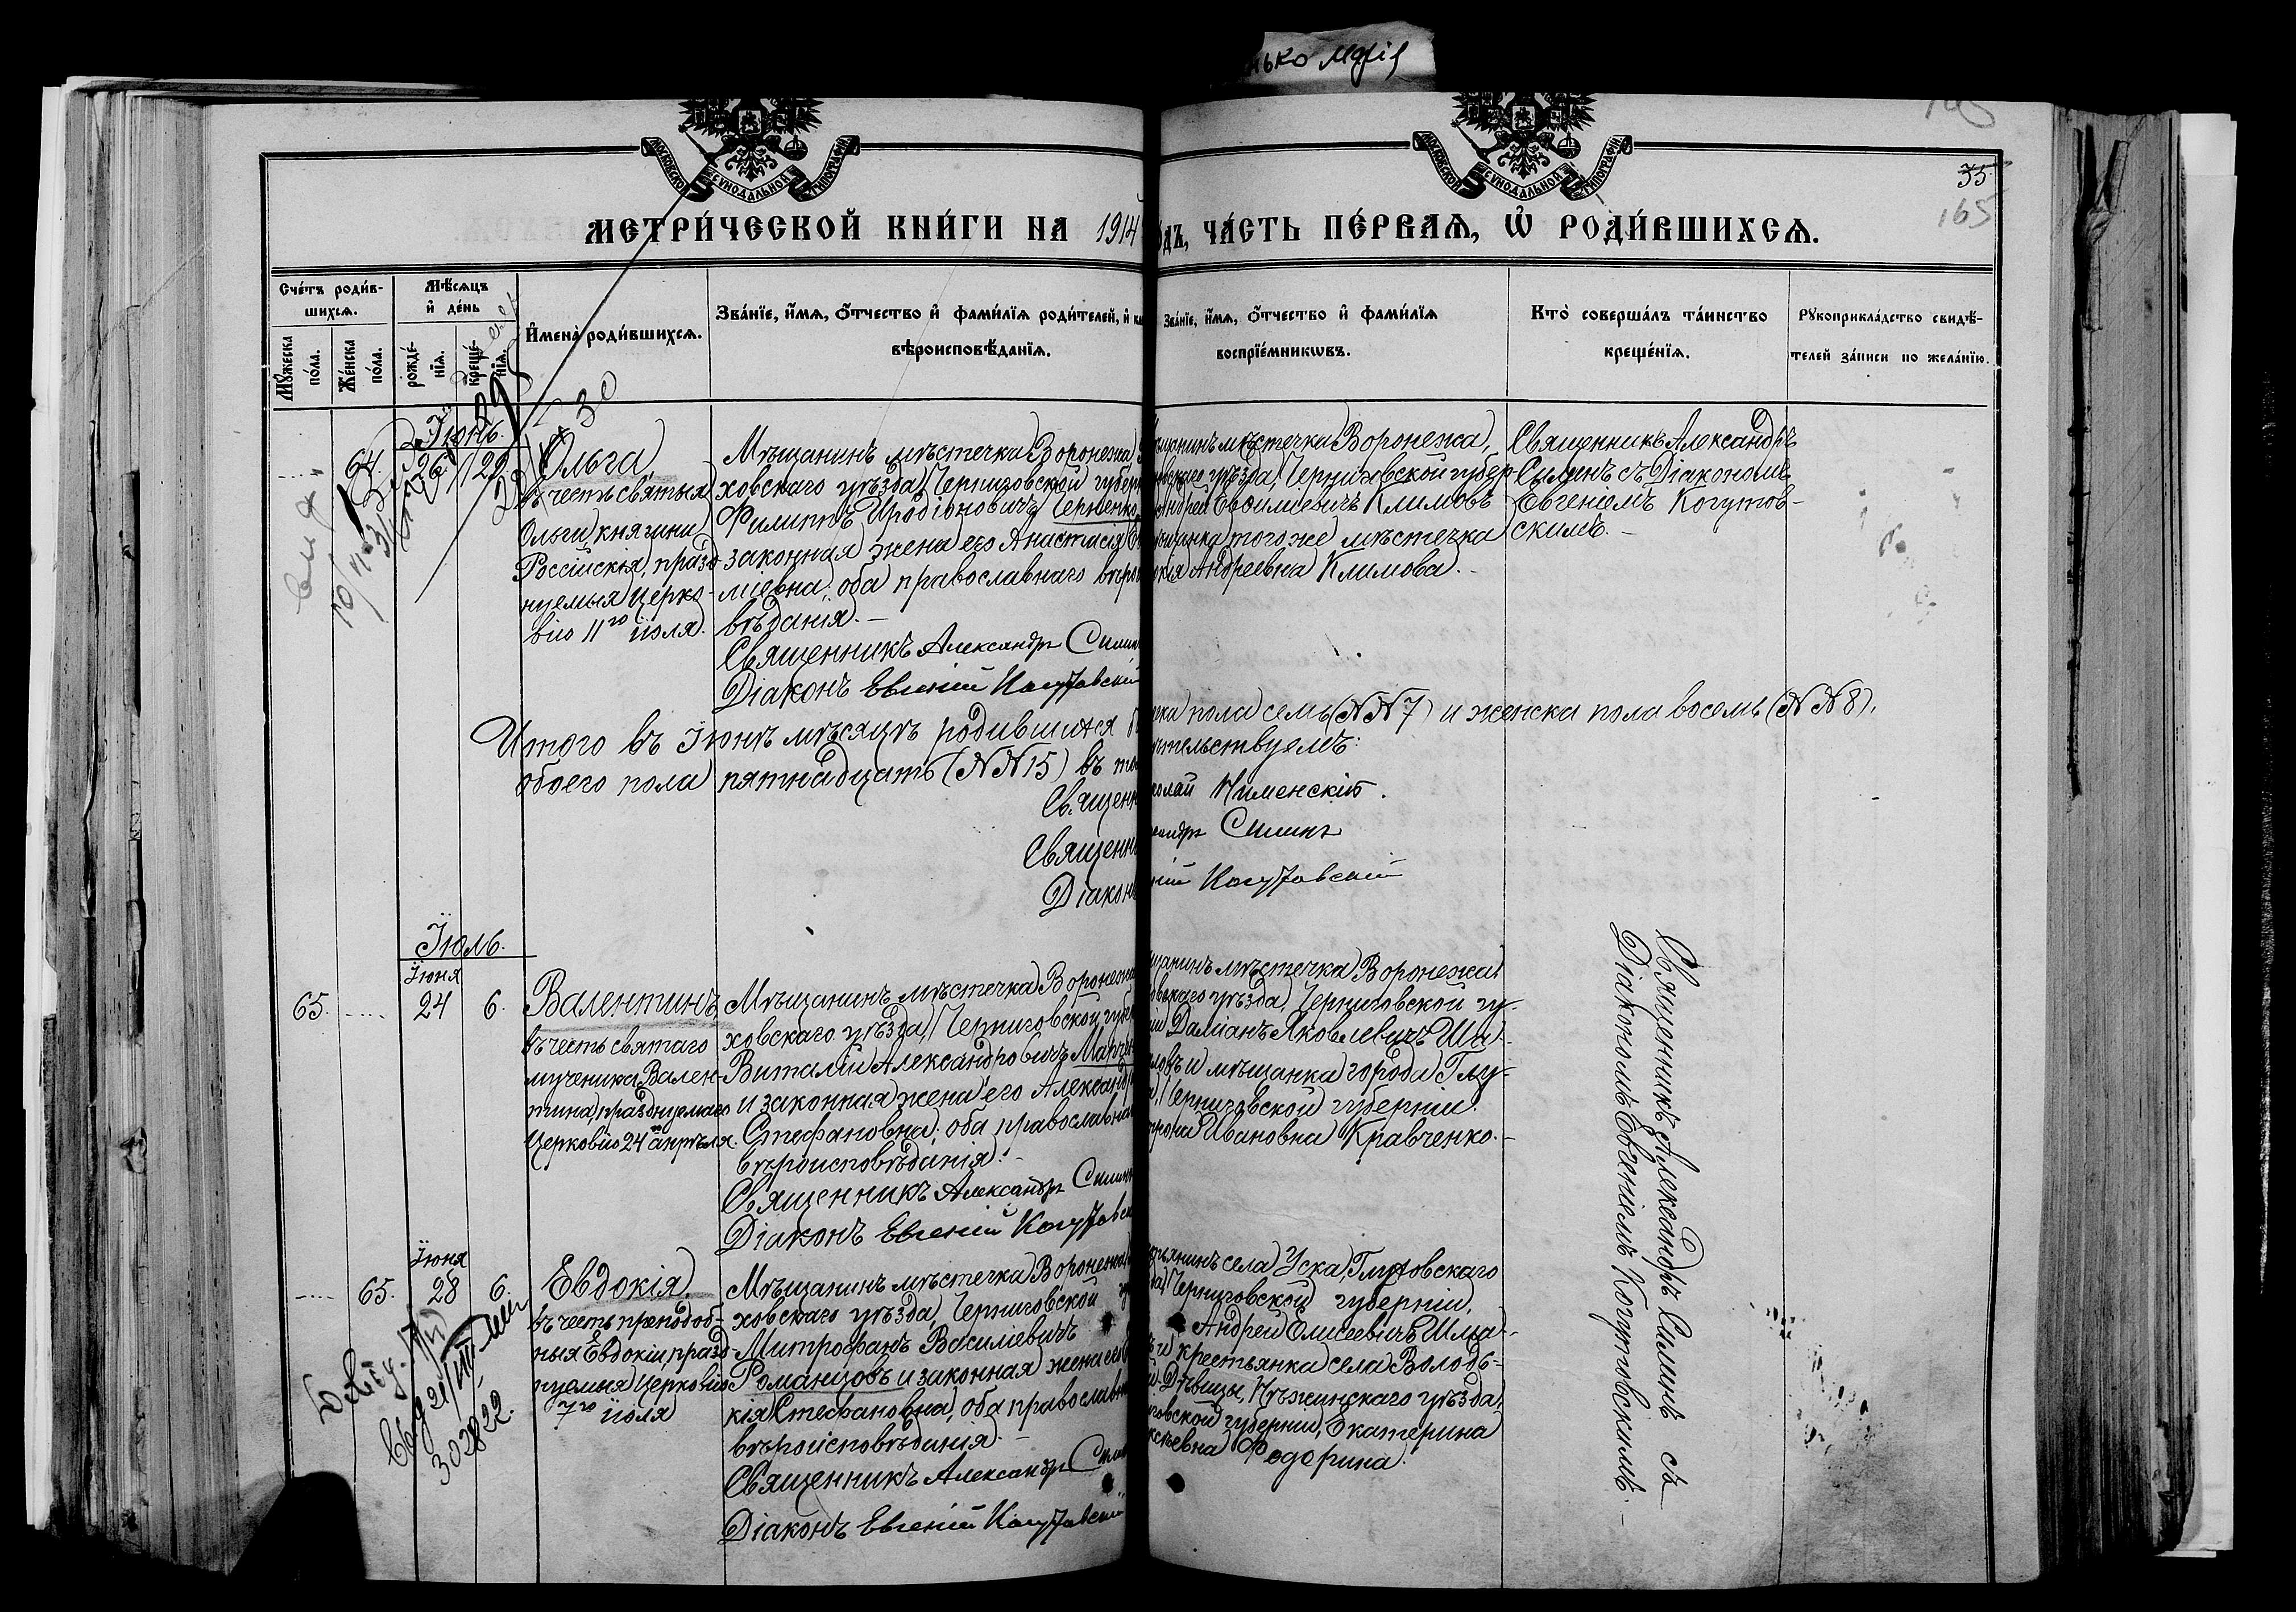 нько Марія
МОСКОВСКОЙ СѴНОДАЛЬНОЙ ТИПОГРАФІИ
МОСКОВСКОЙ СѴНОДАЛЬНОЙ ТИПОГРАФІИ
35
165
МЕТРИ́ЧЕСКОЙ КНИ́ГИ НА 1914
ОДЪ, ЧА́СТЬ ПЕ́РВАѦ, Ѽ РОДИ́ВШИХСѦ.
Сче́тъ роди́в-
шихсѧ.
Мꙋ́жеска по́ла.
Же́нска по́ла.
Мѣ́сѧцъ
и҆ де́нь
рожде́-
нїѧ.
креще́-
нїѧ.
И҆мена̀ роди́вшихсѧ.
Зва́нїе, и҆́мѧ, ѻ҆́тчество и҆ фами́лїѧ роди́телей, и҆ ка
вѣроисповѣ́данїѧ.
Зва́нїе, и҆́мѧ, ѻ҆́тчество и҆ фами́лїѧ
воспрїе́мникѡвъ.
Кто̀ соверша́лъ та́инство
креще́нїѧ.
Рꙋкоприкла́дство свидѣ́-
телей за́писи по жела́нїю.
Іюнь.
64. 26 29.
Ольга,
въ честь святыя
Ольги, княгини
Россійскія, празд-
нуемыя Церко-
вію 11го іюля.
Мѣщанинъ мѣстечка Воронежа
ховскаго уѣзда, Черниговской губерн
Филиппъ Иродіоновичъ Черненко
законная жена его Анастасія
міевна, оба православнаго вѣрои
вѣданія.
Священникъ Александръ Силин
Діаконъ Евгеній Когутовскій
щанинъ мѣстечка Воронежа,
ховскаго уѣзда, Черниговской губер-
Андрей Евѳиміевичъ Климовъ
щанка того же мѣстечка
кія Андреевна Климова.
Священникъ Александръ
Силинъ съ Діакономъ
Евгеніемъ Когутов-
скимъ.
Итого въ Іюнѣ мѣсяцѣ родившихся
ска пола семь (№№ 7) и женска пола восемь (№№ 8),
обоего пола пятнадцать (№№ 15) въ то
ѣтельствуемъ:
Священн
колай Нименскій.
Священн
сандръ Силинъ
Діаконъ
ній Когутовскій
Іюль.
Іюня
65. 24 6.
Валентинъ,
въ честь святаго
мученика Вален-
тина, празднуемаго
Церковію 24 апрѣля.
Мѣщанинъ мѣстечка Воронежа
ховскаго уѣзда, Черниговской губер
Виталій Александровичъ
и законная жена его Александр
Стефановна, оба православна
вѣроисповѣданія.
Священникъ Александръ Силинъ
Діаконъ Евгеній Когутовск
щанинъ мѣстечка Воронежа
овскаго уѣзда, Черниговской гу-
ніи Даміанъ Яковлевичъ Ша-
ловъ и мѣщанка города Глу-
Черниговской губерніи
рона Ивановна Кравченко.
Священникъ Александръ Силинъ съ
Діакономъ Евгеніемъ Когутовскимъ.
Іюня
65. 28 6.
Евдокія,
въ честь преподоб-
ныя Евдокіи, празд-
нуемыя Церковію
7го іюля
Мѣщанинъ мѣстечка Воронежа
ховскаго уѣзда, Черниговской
Митрофанъ Василіевичъ
Романцовъ и законная жена его
кія Стефановна, оба православн
вѣроисповѣданія.
Священникъ Александръ
Діаконъ Евгеній Когутовскій
стьянинъ села Уска, Глуховскаго
Черниговской губерніи,
Андрей Елисеевичъ Шма-
и крестьянка села Володь-
Дѣвицы, Нѣжинскаго уѣзда,
говской губерніи, Екатерина
ксѣевна Федорина.
302822.